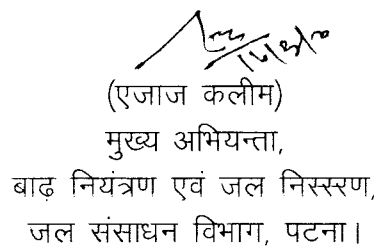 (एजाज कलीम)
मुख्य अभियन्ता,
बाढ़ नियंत्रण एवं जल निस्स्रण,
जल संसाधन विभाग, पटना।